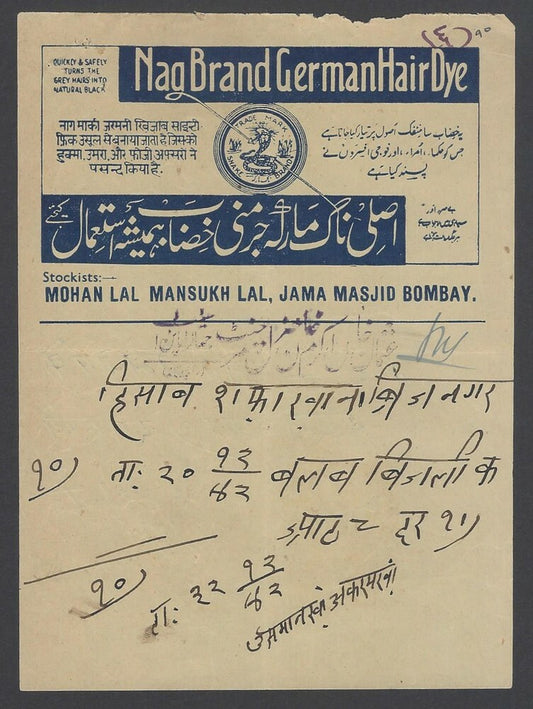 १०
QUICKLY & SAFELY
TURNS THE
GREY HAIRS INTO
NATURAL BLACK
Nag Brand German Hair Dye
नाग मार्का जरमनी खिज़ाब साइंटी
फ़िक उसूल से बनाया जाता है जिसको
हुक्मा, उमरा, और फौजी अफ्सरो ने
पसन्द किया है.
TRADE MARK
SNAKE BRAND
یہ خضاب سائنٹفک اصول پر تیار کیا جاتا ہے
جس کو حکما، اُمراء، اور فوجی افسروں نے
پسند کیا ہے
اصلی ناگ مارکہ جرمنی خضاب ہمیشہ استعمال کیجئے
بے ضرر اور
Stockists:—
MOHAN LAL MANSUKH LAL, JAMA MASJID BOMBAY.
हिसाब शफ़ाखाना बिजनगर
१०) ता: २० १२/४२ बलब बिजली के
दर १)
१०)
ता: २२ १२/४२
उसमानखां अकरमखां